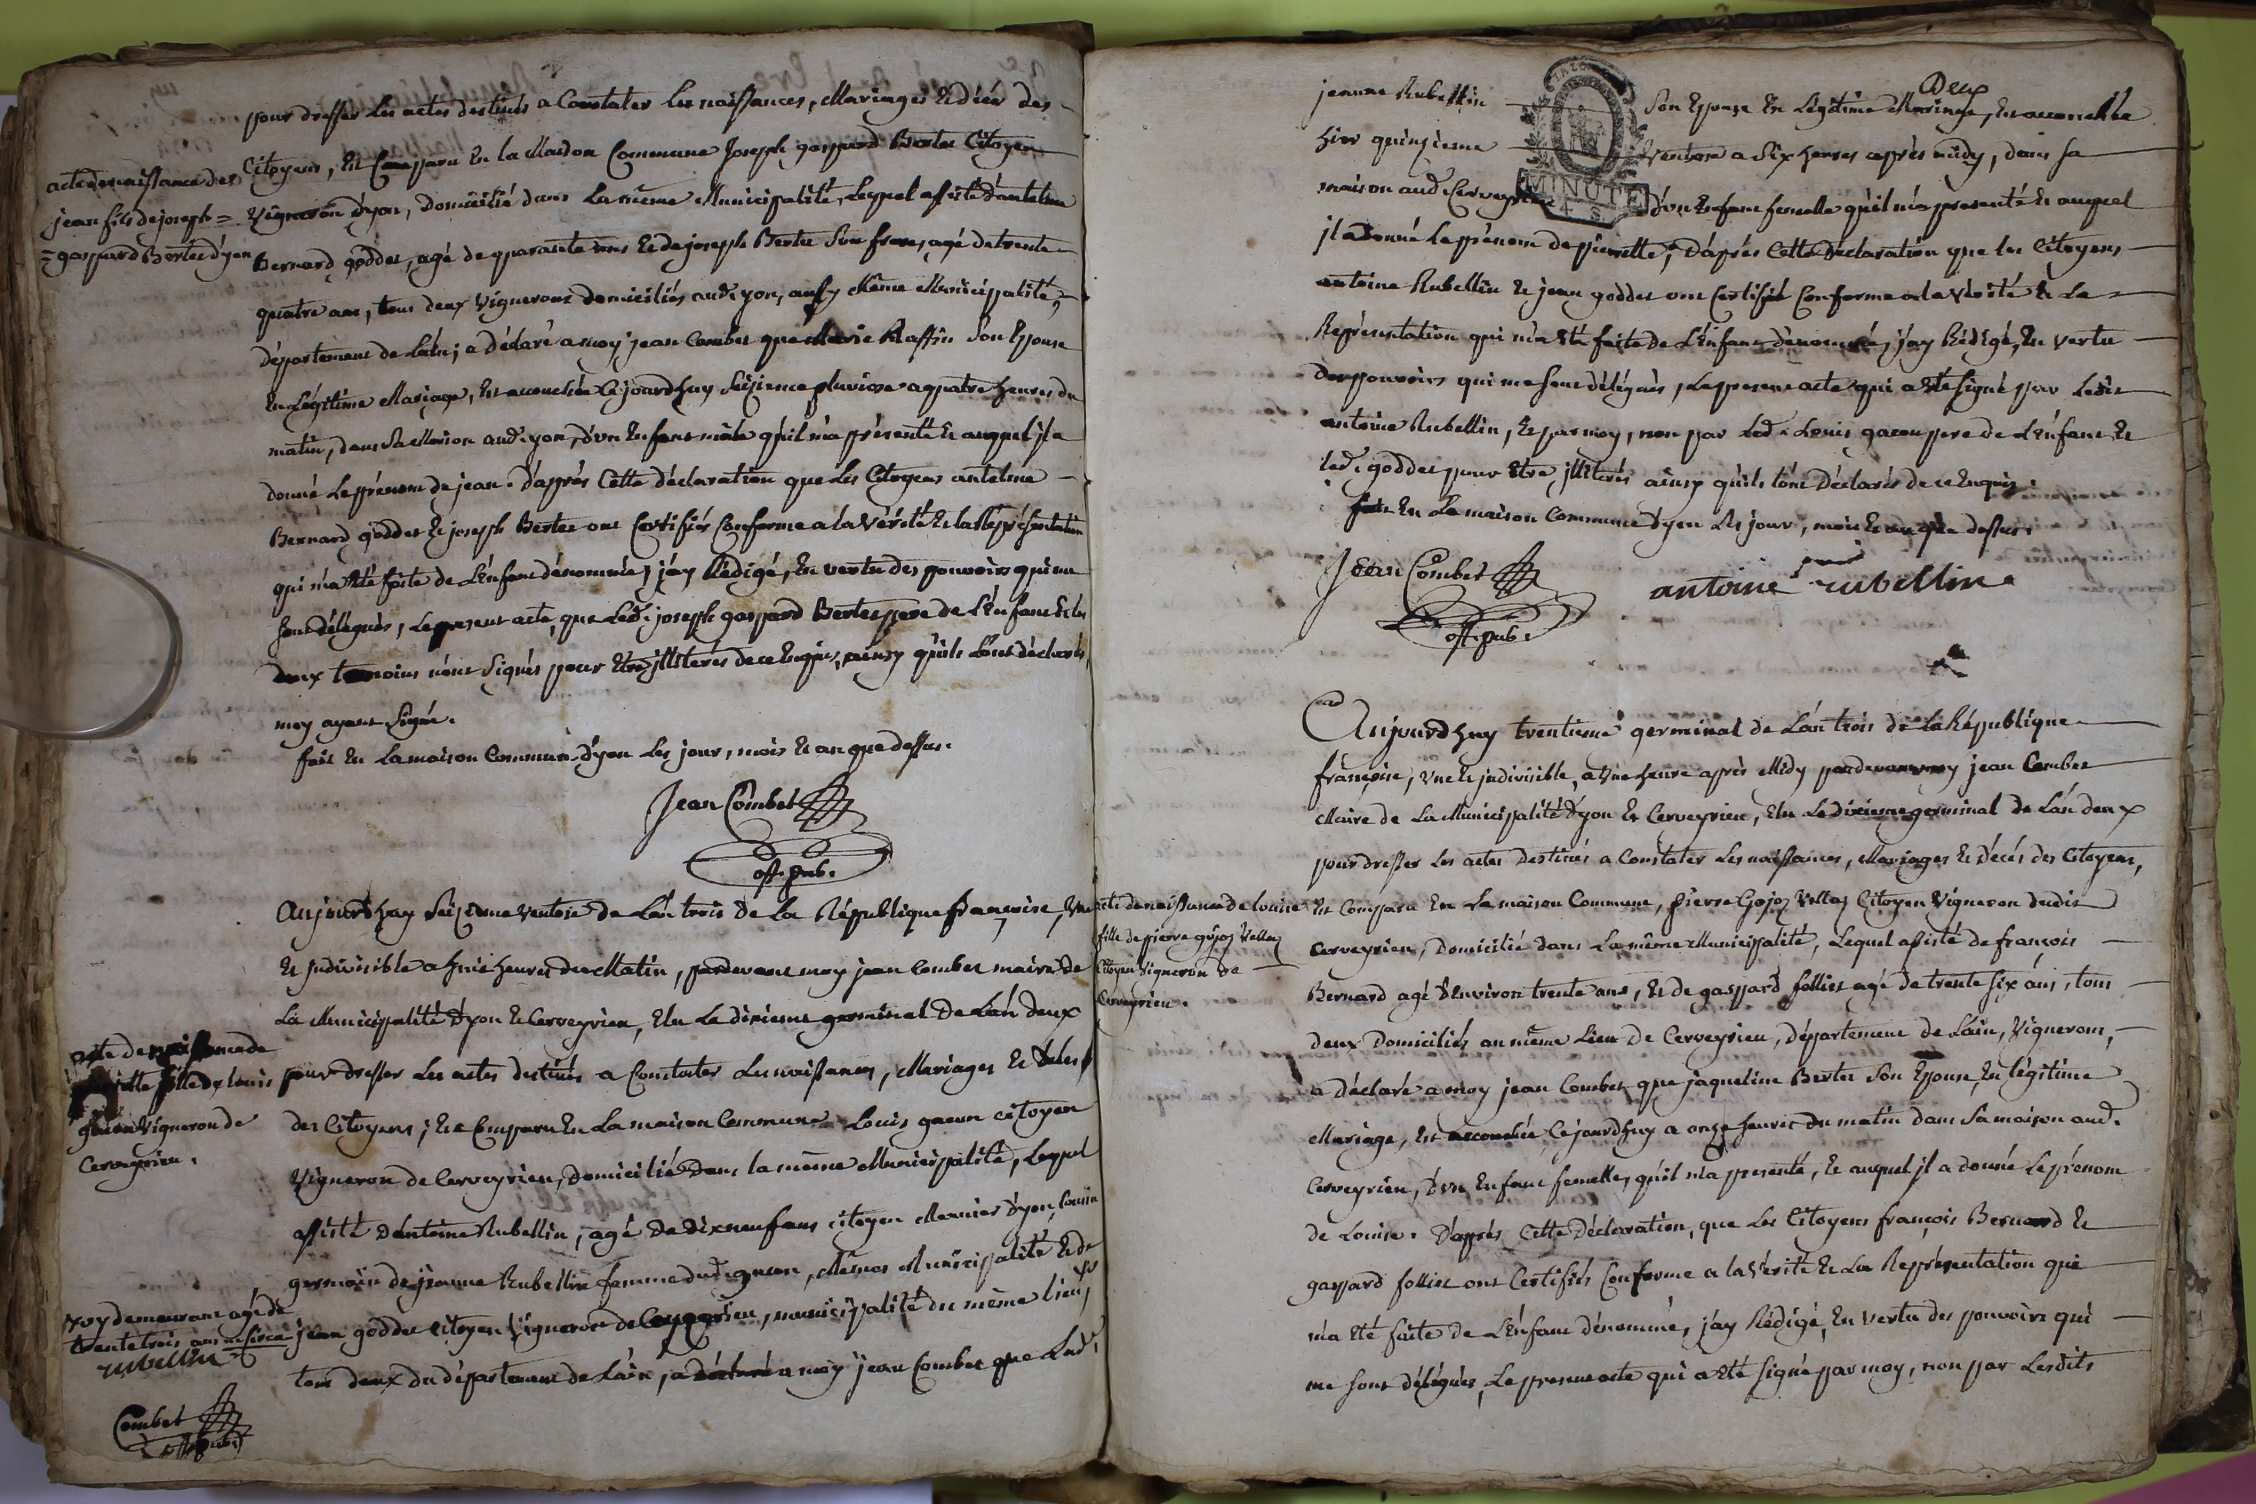 pour dresser les actes destinés a Constater les naissances, Mariages et décés des
Citoyens, Est Comparu En la Maison Commune Joseph gaspard Bertet Citoyen
acte de naissance de
jean fils de joseph =
= gaspard Bertet d'yon
Vigneron d'yon, Domicilié dans la même Municipalité, Lequel assisté d'antelme
Bernard goddet, agé de quarante ans et de joseph Bertet Son frere, agé de trente
quatre ans, tous deux Vignerons domiciliés aud. yon, aussy même Municipalité,
département de L'ain, a Déclaré a moy jean Combet que Marie Raffin Son Epouse
En Légitime Mariage, Est accouchée Cejourdhuy Seizieme pluviose a quatre heures du
matin, dans Sa Maison aud. yon, d'un Enfant mâle qu'il m'a présenté et auquel jl a
donné Le prénom de jean. D'aprés Cette Déclaration que Les Citoyens antelme
Bernard goddet et joseph Bertet ont Certifiés Conforme a la Vérité et la Représentation
qui m'a été faite de L'Enfant dénommé, j'ay Rédigé, En vertu des pouvoirs qui me
sont délégués, Le present acte, que Led. joseph gaspard Bertet pere de L'Enfant et les
deux temoins n'ont Signés pour Etre jlliterés de ce Enquis, ainsy qu'ils L'ont déclarés,
moy ayant Signé.
fait En La maison Commune d'yon Les jour, mois et an que dessus.
Jean Combet
off. pub.
Aujourdhuy Seizieme Ventose de L'an trois de La République françoise, Une
Et Indivisible a huit heures du Matin, pardevant moy jean Combet maire de
La Municipalité d'yon et Cerveyrieu, Elu Le dixieme germinal de L'an deux
acte de naissance de
fille de Louis
gacon Vigneron de
Cerveyrieu.
pour dresser Les actes destinés a Constater Les naissances, Mariages et
des Citoyens; Est Comparu En La maison Commune Louis gacon citoyen
Vigneron de Cerveyrieu, Domicilié dans la même Municipalité, Lequel
assisté d'antoine Rubellin, agé de dixneuf ans citoyen Meunier d'yon, Cousin
germain de jeanne Rubellin femme dud. gacon, même Municipalité et de
jean goddet citoyen Vigneron de Ceyzerieu, municipalité du même lieu,
y demeurant agé de
trente trois ans
rubellin
Combet
off. pub.
tous deux du département de L'ain, a déclaré a moy jean Combet que Lad.
Deux
jeanne Rubellin Son Epouse En Légitime Mariage, Est accouchée
MINUTE
hier quinzieme Ventose a Six heures après midy, dans Sa
maison aud. Cerveyrieu d'un Enfant femelle qu'il m'a presenté et auquel
jl a donné Le prénom de pierrette, D'aprés Cette Déclaration que les Citoyens
antoine Rubellin et jean goddet ont Certifié Conforme a la Vérité et La
Représentation qui m'a Eté faite de L'Enfant dénommé, j'ay Rédigé, En vertu
des pouvoirs qui me sont délégués, Le present acte qui a Eté Signé par Ledit
antoine Rubellin, et par moy, non par Led. Louis gacon pere de L'Enfant et
led. goddet pour Etre jlliterés ainsy qu'ils L'ont Déclarés de ce Enquis.
fait En La maison Commune d'yon Les jour, mois et an que dessus.
Jean Combet
off. pub.
antoine rubellin
Aujourdhuy trentieme germinal de L'an trois de La République
françoise, Une et jndivisible, a Une heure après Midy pardevant moy jean Combet
Maire de La Municipalité d'yon et Cerveyrieu, Elu Le dixieme germinal de L'an deux
pour dresser Les actes Destinés a Constater Les naissances, Mariages et décés des Citoyens,
acte de naissance de Louise
fille de pierre gojoz Vellaz
Citoyen Vigneron de
Cerveyrieu.
Est Comparu En La maison Commune, pierre Gojoz Vellaz Citoyen Vigneron dudit
Cerveyrieu, Domicilié dans La même Municipalité, Lequel assisté de françois
Bernard agé d'Environ trente ans, et de gaspard follier agé de trente six ans, tous
deux Domiciliés au même Lieu de Cerveyrieu, Département de L'ain, Vignerons,
a Déclaré a moy jean Combet que jaqueline Bertet Son Epouse En légitime
Mariage, Est accouchée Cejourdhuy a onze heures du matin dans Sa maison aud.
Cerveyrieu, d'un Enfant femelle, qu'il m'a presenté, et auquel jl a donné Le prénom
de Louise. D'après Cette Déclaration, que Les Citoyens françois Bernard et
gaspard follier ont Certifiés Conforme a la Vérité et La Représentation qui
m'a été faite de L'Enfant dénommé, j'ay Rédigé, En vertu des pouvoirs qui
me sont délégués, Le present acte qui a Eté Signé par moy, non par Lesdits